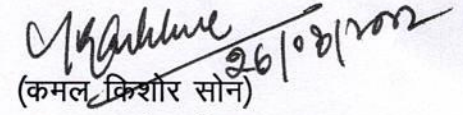 26/08/2022
(कमल किशोर सोन)